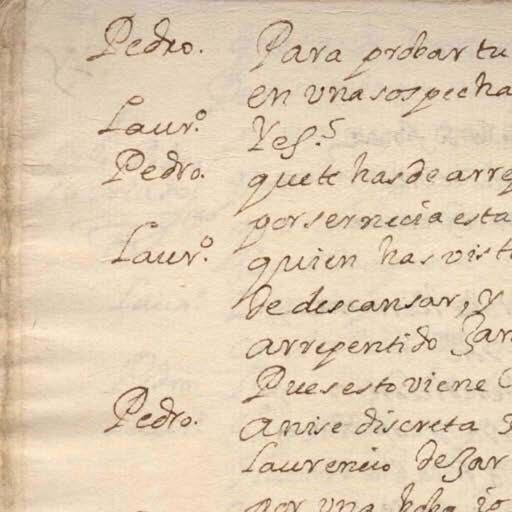 Pedro. Para probar tu
en una sospecha
Laur.º Yes.
Pedro. que te has de arrep
por ser necia esta
Laur.º quien has vist
de descansar, y
arrepentido
Pues esto viene
Pedro. a nise discreta
Laurencio dezar
por una boba